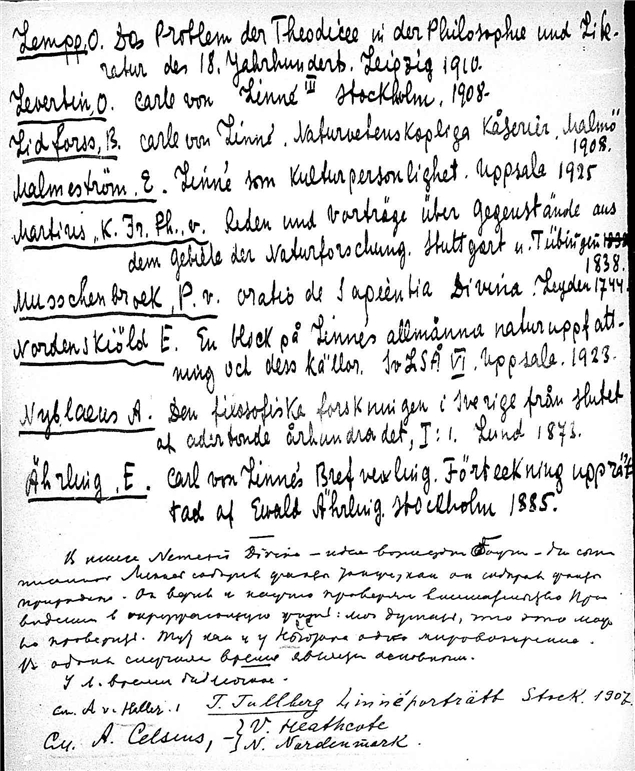 Lempp, O. Das Problem der Theodicee in der Philosophie und Lite-
ratur des 18. Jahrhunderts. Leipzig 1910.
Levertin, O. Carle von Linné Stockholm. 1908.
Lidforss, B. Carle von Linné. Naturvetenskapliga Kåserier, Malmö
1908.
Malmeström, E. Linné som Kulturpersonlighet. Uppsala 1925
Martius, K. Fr. Ph., v. Reden und Vorträge über Gegenstände aus
dem Gebiete der Naturforschung. Stuttgart u. Tübingen
1838.
Musschenbroek, P. v. Oratio de Sapientia Divina. Leyden 1744.
Nordenskiöld E. En block på Linnés allmänna naturuppfatt-
ning och dess källor. SvLSÅ VI. Uppsala. 1923.
Nyblaeus A. Den filosofiska forskningen i Sverige från slutet
af adertonde århundradet, I:1. Lund 1873.
Ährling, E. Carl von Linnés Brefvexling. Förteckning upprät-
tad af Ewald Ährling. Stockholm 1885.
В книге Nemesis Divina – идея возмездия –
Линней собирал факты так же, как он собирал факты
природы. Он верил и научно проверял
в окружающую
проверить. и у мировоззрение.
В время основным.
У Л. время
см. A v. Haller. T. Tullberg Linnéporträtt Stock. 1907
См. A. Celsius, – } V. Heathcote
N. Nordenmark.